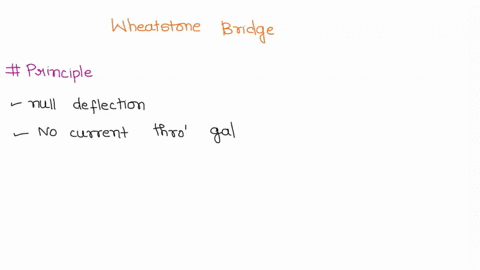 Wheatstone Bridge
# Principle
- null deflection
- No current thro' gal